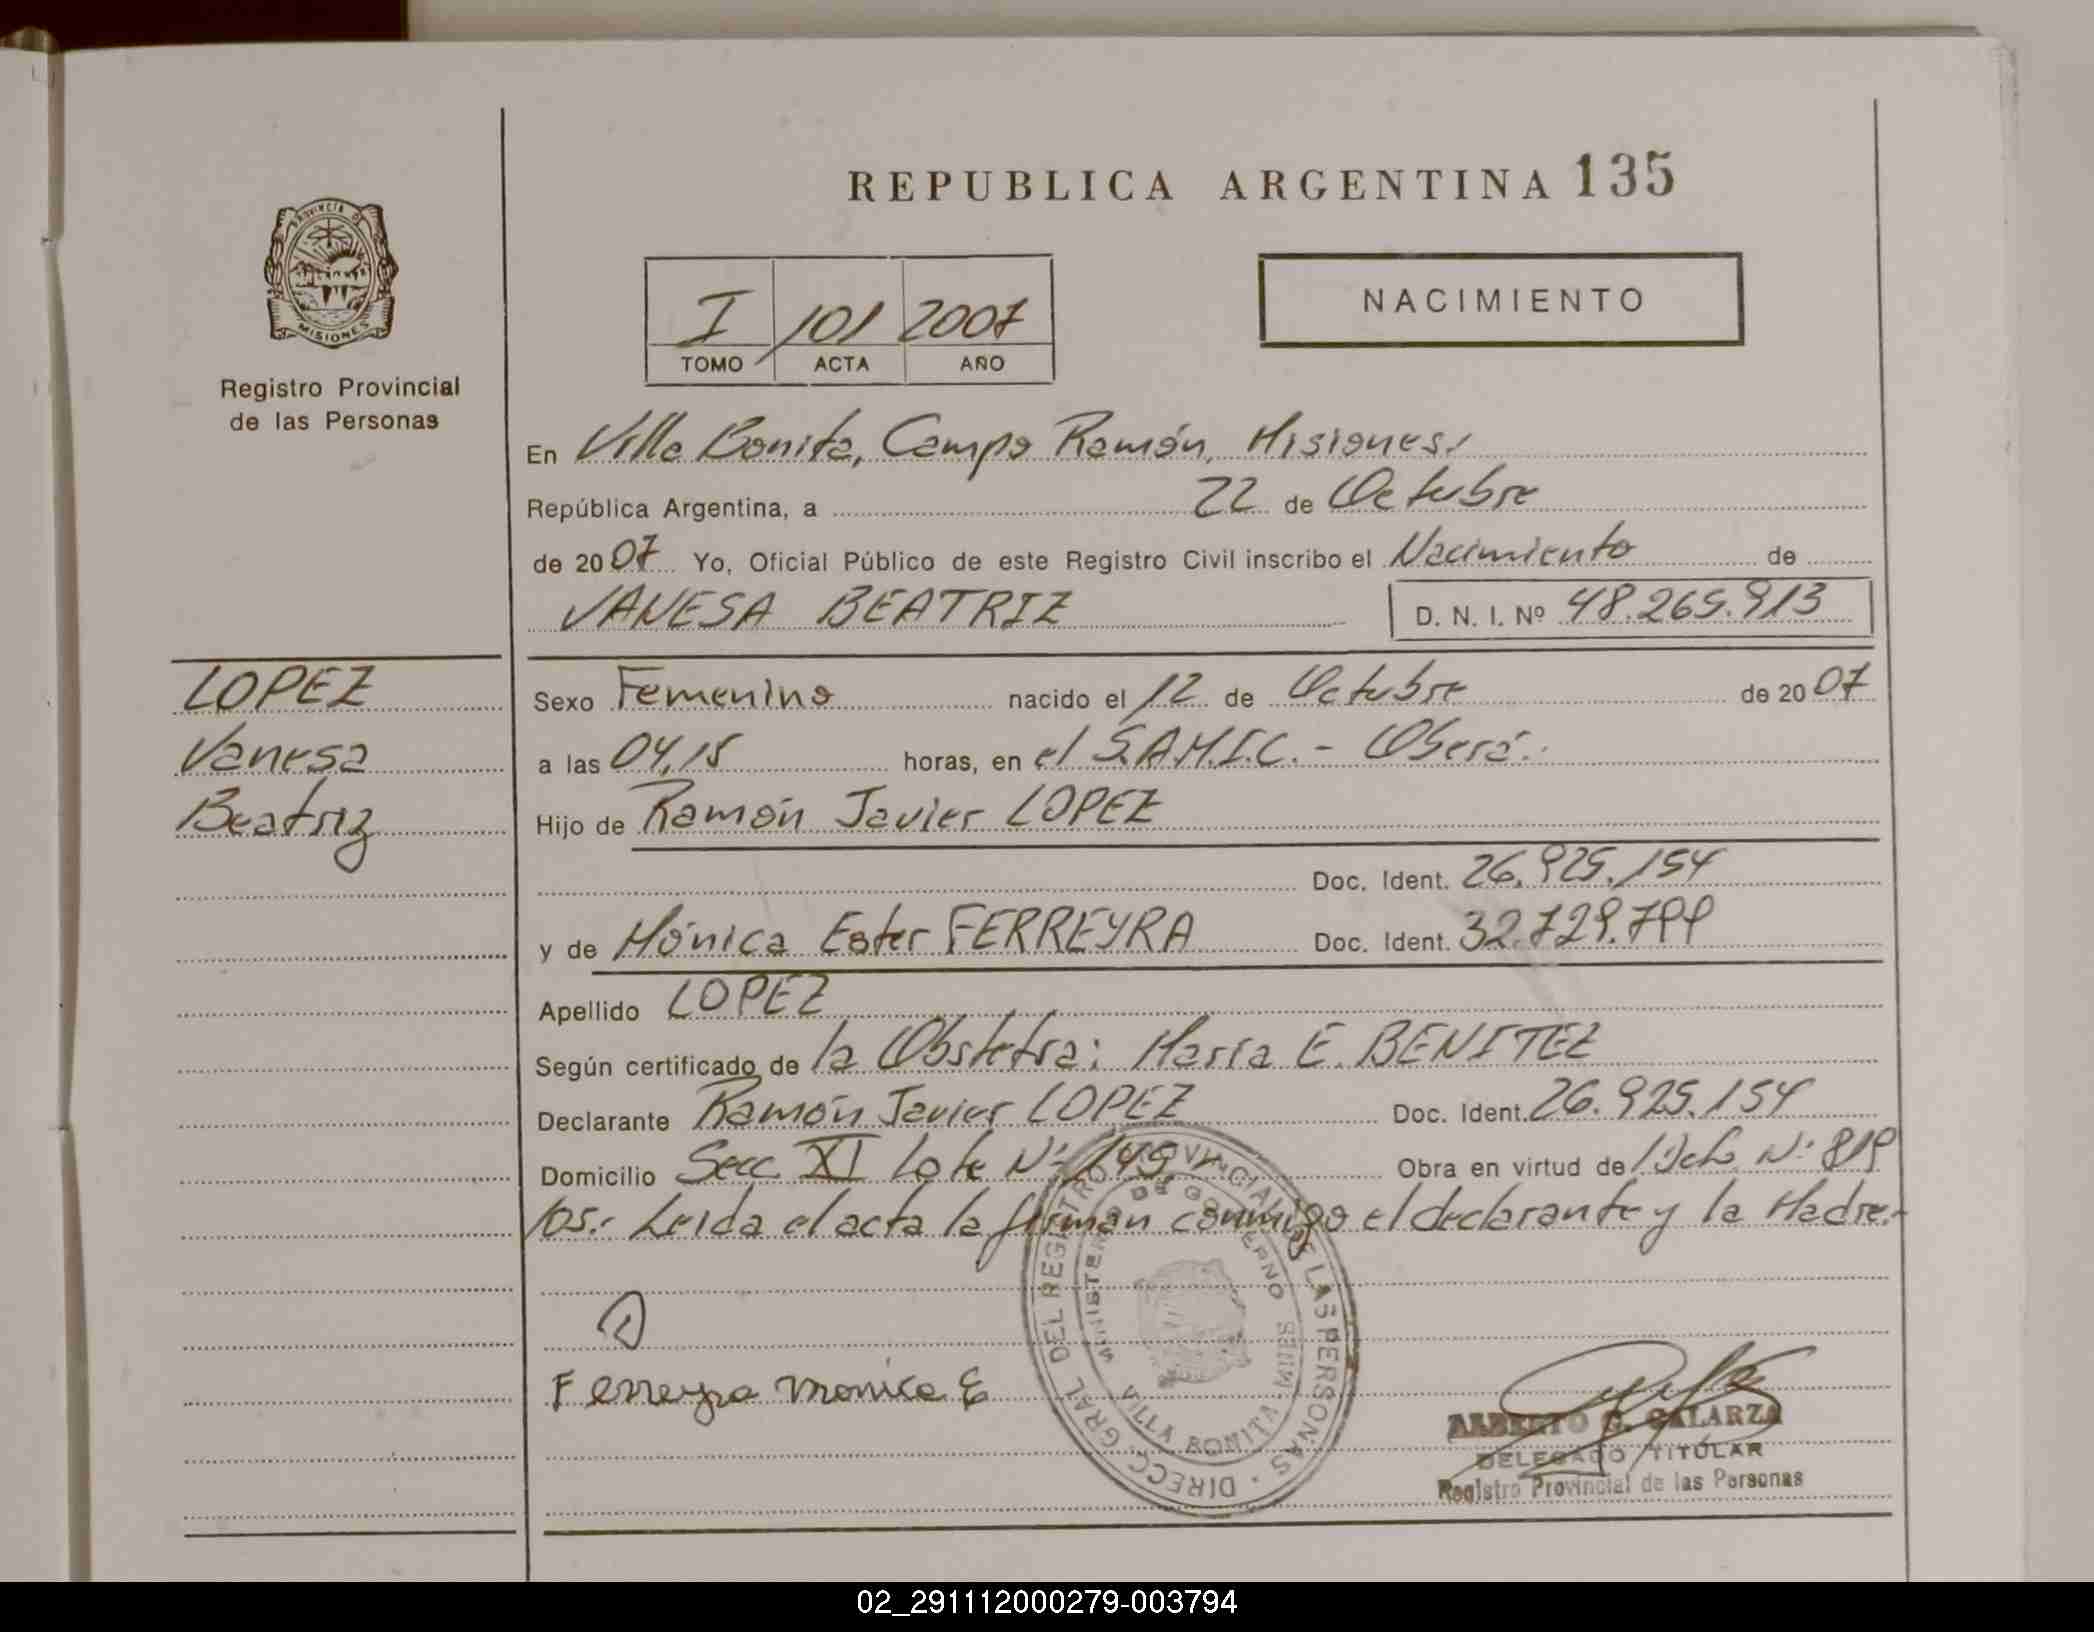 REPUBLICA ARGENTINA 135
PROVINCIA DE
MISIONES
Registro Provincial
de las Personas
I 101 2007
TOMO ACTA AÑO
NACIMIENTO
En Villa Bonita, Campo Ramón, Misiones.
República Argentina, a 22 de Octubre
de 2007 Yo, Oficial Público de este Registro Civil inscribo el Nacimiento de
VANESA BEATRIZ D. N. I. Nº 48.265.913
LOPEZ
Vanesa
Beatriz
Sexo Femenino nacido el 12 de Octubre de 2007
a las 04,15 horas, en el S.A.M.I.C. - Oberá.
Hijo de Ramón Javier LOPEZ
Doc. Ident. 26.925.154
y de Mónica Ester FERREYRA Doc. Ident. 32.729.799
Apellido LOPEZ
Según certificado de la Obstetra: María E. BENITEZ
Declarante Ramón Javier LOPEZ Doc. Ident. 26.925.154
Domicilio Secc. XI Lote Nº 149 Obra en virtud de Dcto Nº 819
/05.- Leida el acta la firman conmigo el declarante y la Madre.-
Ferreyra Monica E
DIRECC. GRAL. DEL REGISTRO PROVINCIAL DE LAS PERSONAS
MINISTERIO DE GOBIERNO
VILLA BONITA
ALBERTO G. GALARZA
DELEGADO TITULAR
Registro Provincial de las Personas
02_291112000279-003794